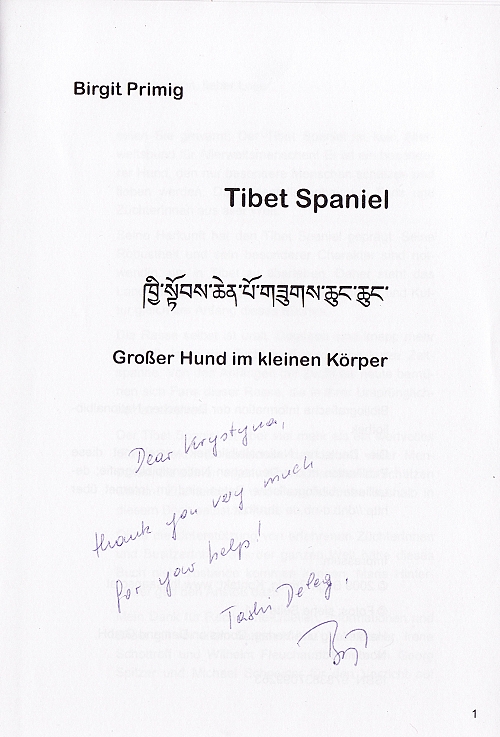 Birgit Primig
Tibet Spaniel
ཁྱི་སྟོབས་ཆེན་པོ་གཟུགས་ཆུང་ཆུང་
Großer Hund im kleinen Körper
Dear Krystyna,
thank you very much
for your help!
Tashi Deleg.
1